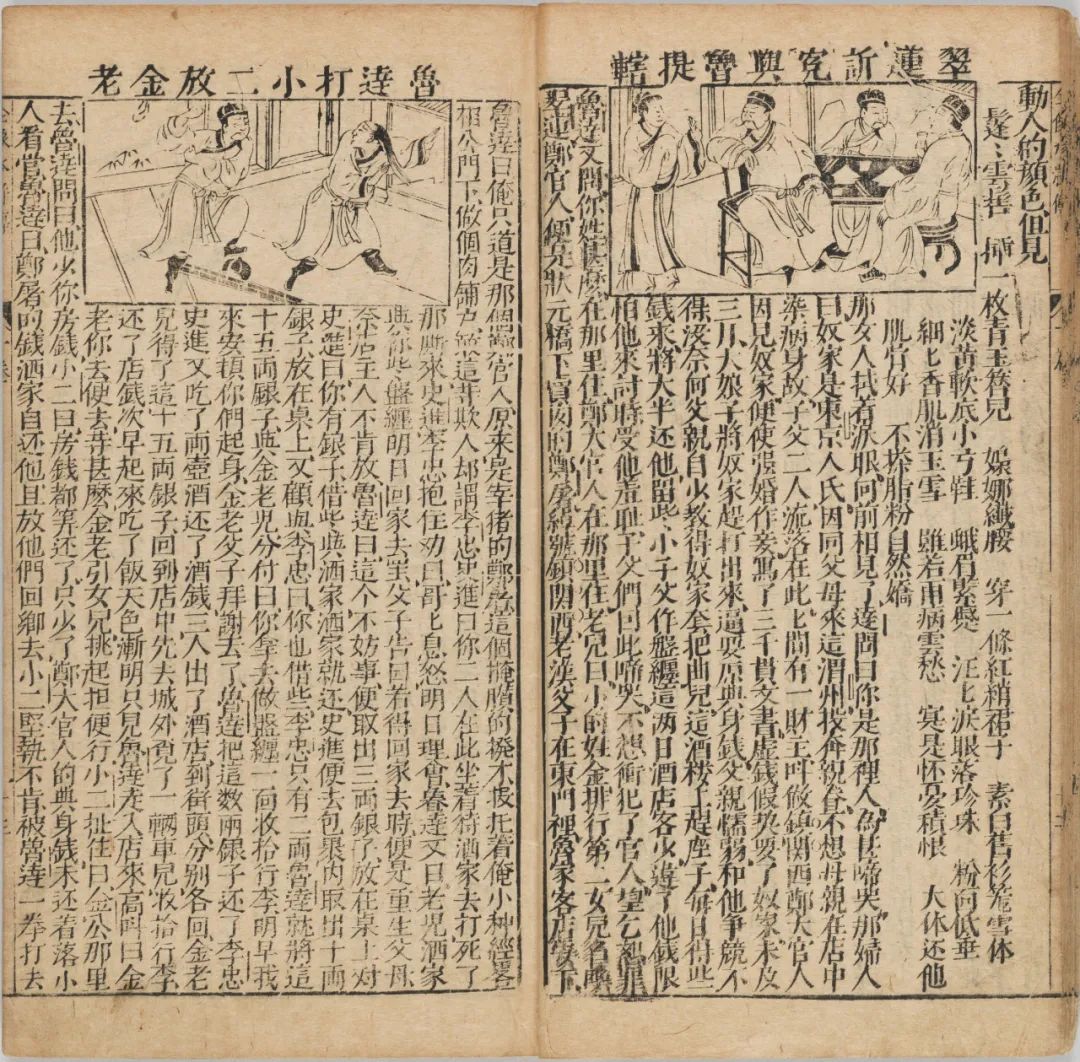 翠蓮訴冤與魯提轄
動人的顏色但見
鬔〻雲髻 插一枚青玉簪兒 嬝娜纖腰 穿一條紅綃裙子 素白舊衫籠雪体
淡黃軟底小弓鞋 蛾眉緊蹙 汪〻淚眼落珍珠 粉面低垂
細〻香肌消玉雪 雖若雨病雲愁 寔是怀憂積恨 大体还他
肌骨好 不搽脂粉自然嬌
那女人拭着淚眼向前相見了達問曰你是那裡人為甚啼哭那婦人
曰奴家是東京人氏因同父母來這渭州投奔親眷不想母親在店中
染病身故子父二人流落在此〻間有一財主叫做鎮関西鄭大官人
因見奴家便使强婚作妾寫了三千貫文書虛錢假契要了奴家未及
三月大娘子將奴家赶打出來逼要原典身錢父親懦弱和他爭競不
得沒奈何父親自少教得奴家套把曲兒這酒楼上赶座子每日得些
錢來將大半还他留此小子父作盤纏這两日酒店客少違了他錢限
怕他來討時受他羞耻子父們因此啼哭不想衝犯了官人望乞恕罪
魯達又問你姓甚麽在那里住鄭大官人在那里住老兒曰小的姓金排行第二女兒名喚
翠蓮鄭官人便是狀元橋下賣肉的鄭屠綽號鎮関西老漢父子在東門裡魯家客店安下
魯達打小二放金老
魯達曰俺只道是那個鄭官人原來是宰猪的鄭屠這個腌臢的潑才投托着俺小种經畧
相公門下做個肉鋪戶這等欺人却謂李忠史進曰你二人在此坐着待洒家去打死了
那厮來史進李忠抱住劝曰哥〻息怒明日理會魯達又曰老兒洒家
與你些盤纏明日回家去罢父子告曰若得回家去時便是重生父母
奈店主人不肯放魯達曰這个不妨事便取出三両銀子放在桌上对
史進曰你有銀子借些與洒家洒家就还史進便去包裹內取出十両
銀子放在桌上又顧與李忠曰你也借些李忠只有二両魯達就將這
十五両銀子與金老兒分付曰你拿去做盤纏一面收拾行李明早我
來安頓你們起身金老父子拜謝去了魯達把這数両銀子还了李忠
史進又吃了両壺酒还了酒錢三人出了酒店到街頭分別各回金老
兒得了這十五両銀子回到店中先去城外覓了一輛車兒收拾行李
还了店錢次早起來吃了飯天色漸明只見魯達走入店來高呌曰金
老你去便去等甚麽金老引女兒挑起担便行小二扯住曰金公那里
去魯達問曰他少你房錢小二曰房錢都筭还了只少了鄭大官人的典身錢未还着落小
人看當魯達曰鄭屠的錢洒家自还他且放他們回鄉去小二堅執不肯被魯達一拳打去